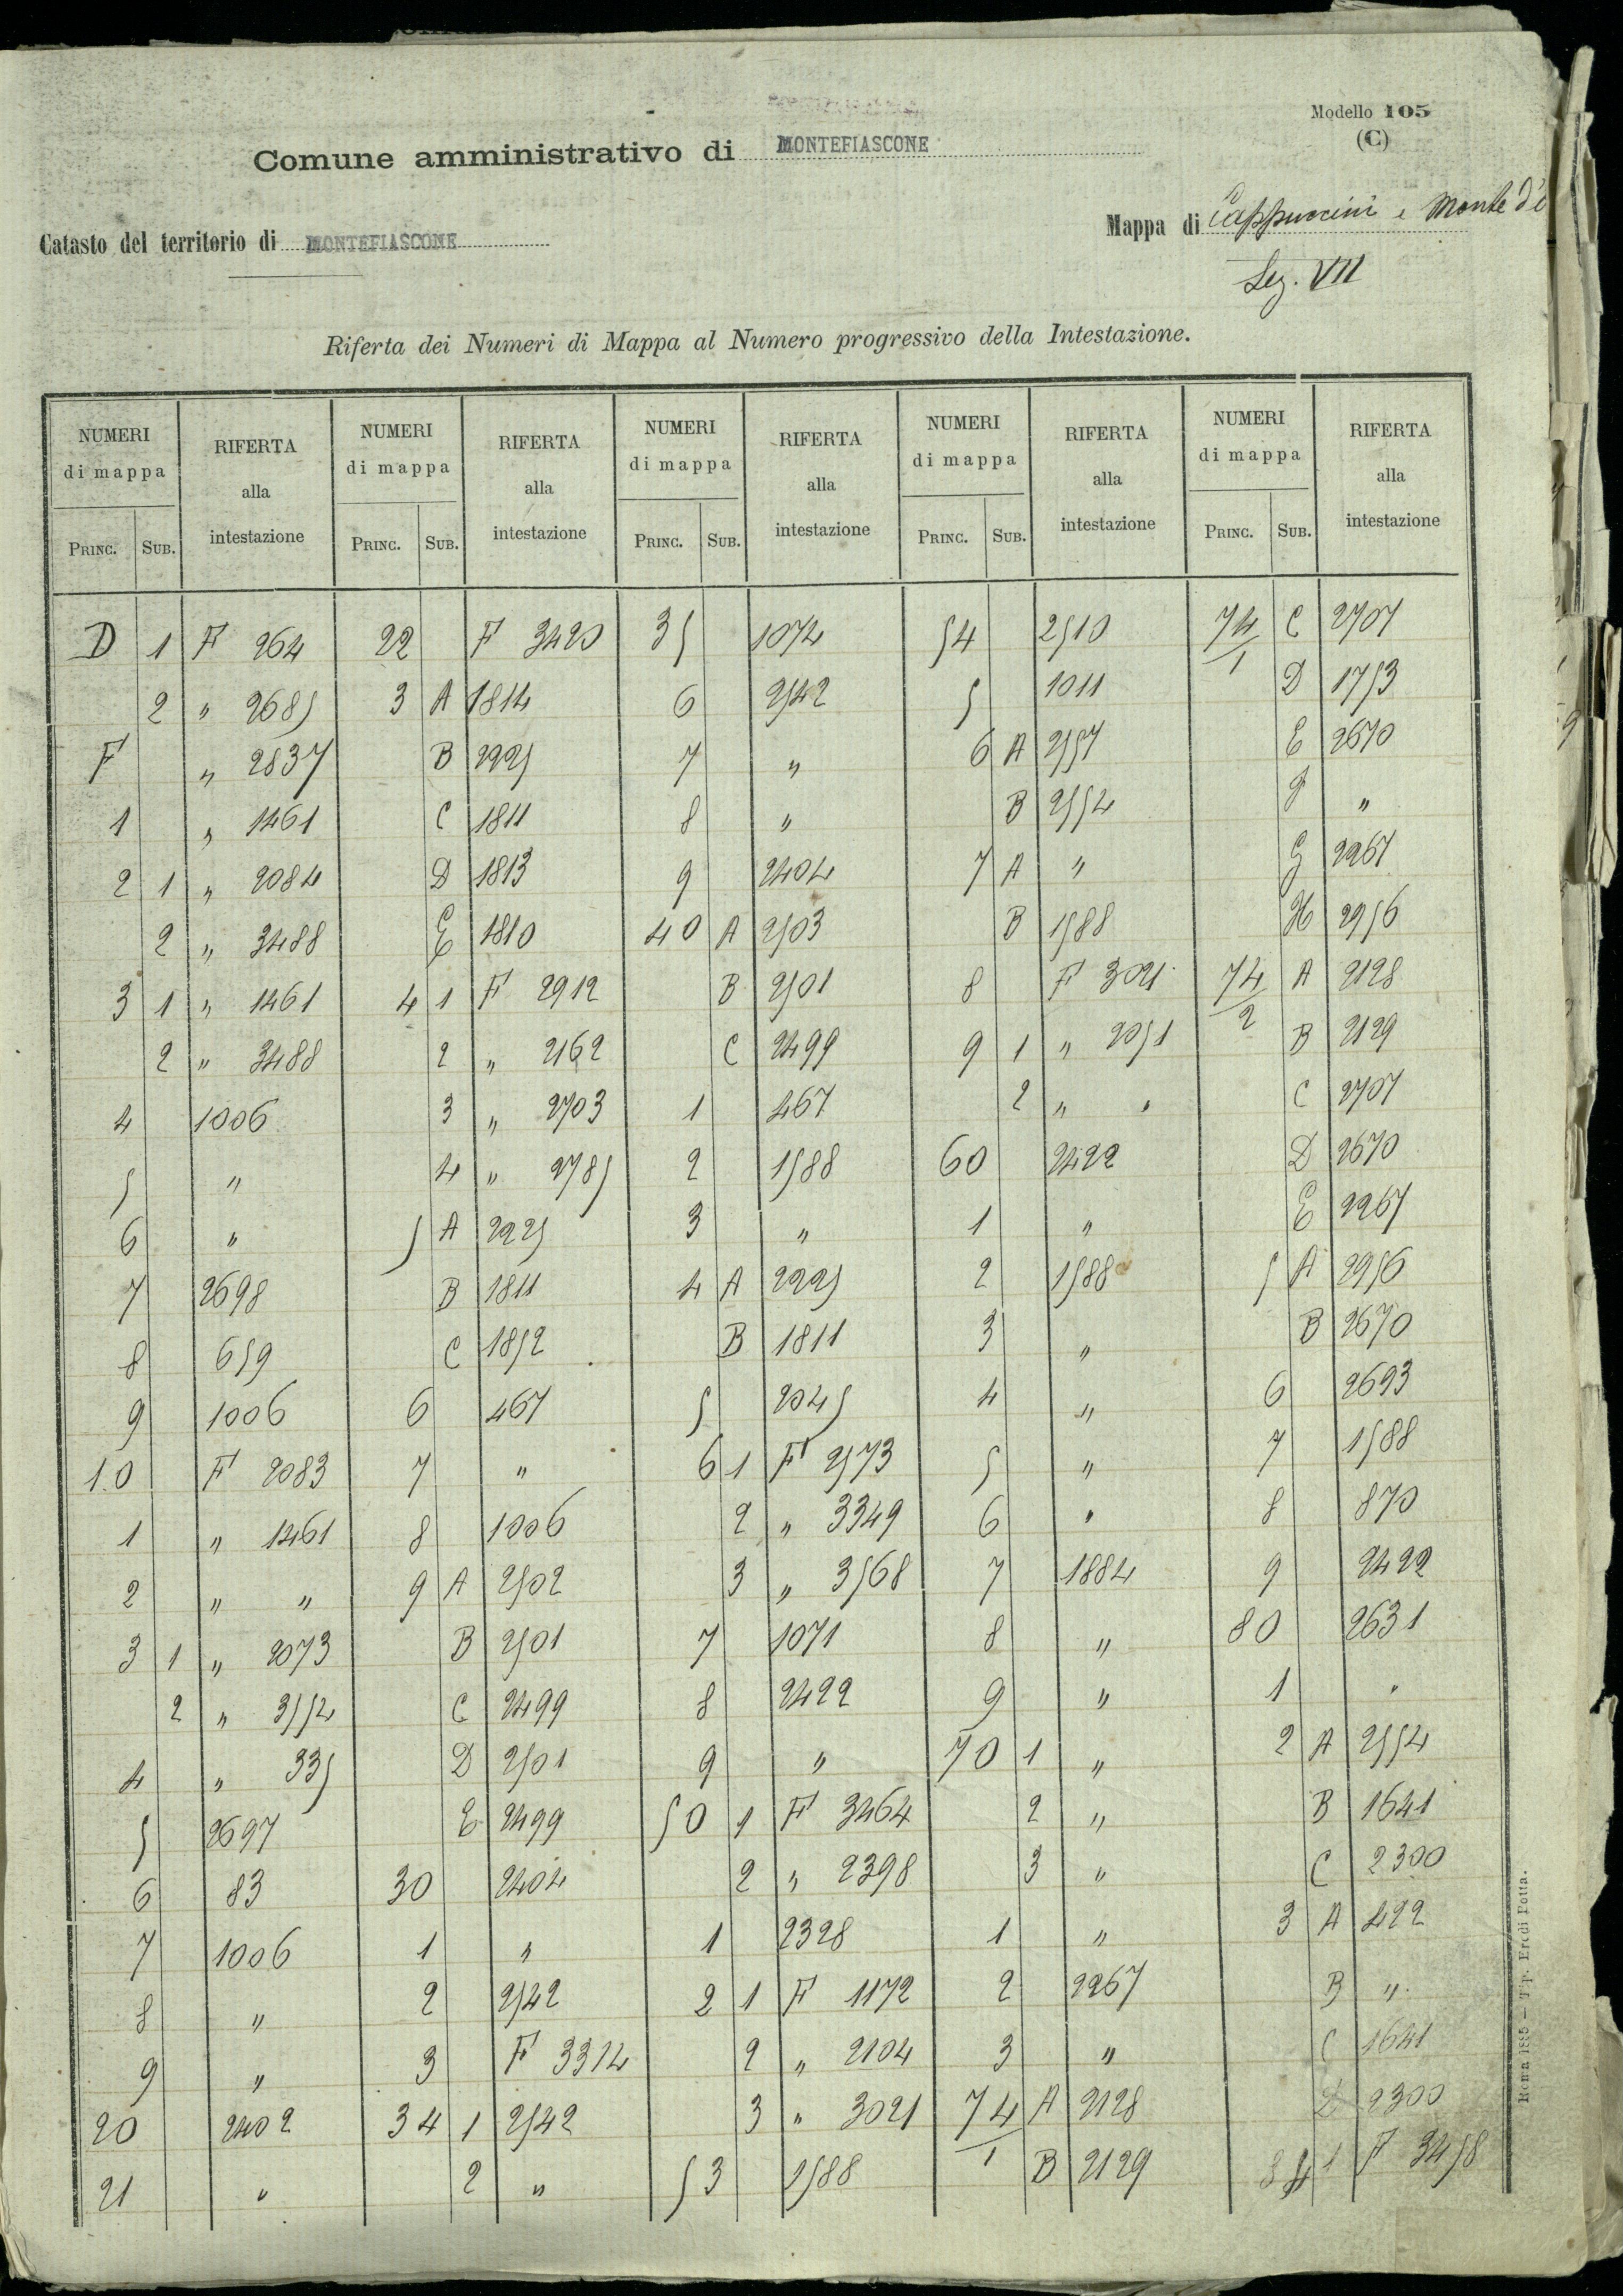 Modello 105
(C)
Comune amministrativo di MONTEFIASCONE
Mappa di Cappuccini e Monte d'
Catasto del territorio di MONTEFIASCONE
Sez. VII
Riferta dei Numeri di Mappa al Numero progressivo della Intestazione.
NUMERI di mappa RIFERTA alla intestazione NUMERI di mappa RIFERTA alla intestazione NUMERI di mappa RIFERTA alla intestazione NUMERI di mappa RIFERTA alla intestazione NUMERI di mappa RIFERTA alla intestazione
PRINC. SUB. PRINC. SUB. PRINC. SUB. PRINC. SUB. PRINC. SUB.
D 1 F 264 22 F 3420 35 1074 54 2510 74/1 C 2707
2 " 2685 3 A 1814 6 2542 5 1011 D 1753
F " 2837 B 2225 7 " 6 A 2557 E 2670
1 " 1461 C 1811 8 " B 2554 F "
2 1 " 2084 D 1813 9 2404 7 A " G 2267
2 " 3488 E 1810 40 A 2503 B 1588 H 2956
3 1 " 1461 4 1 F 2912 B 2501 8 F 3021 74/2 A 2128
2 " 3488 2 " 2162 C 2499 9 1 " 2051 B 2129
4 1006 3 " 2703 1 467 2 " " C 2707
5 " 4 " 2785 2 1588 60 2422 D 2670
6 " 5 A 2225 3 " 1 " E 2267
7 2698 B 1811 4 A 2225 2 1588 5 A 2956
8 659 C 1852 B 1811 3 " B 2670
9 1006 6 467 5 2045 4 " 6 2693
10 F 2083 7 " 6 1 F 2573 5 " 7 1588
1 " 1461 8 1006 2 " 3349 6 " 8 870
2 " " 9 A 2502 3 " 3568 7 1884 9 2422
3 1 " 2073 B 2501 7 1071 8 " 80 2631
2 " 3552 C 2499 8 2422 9 " 1 "
4 " 335 D 2501 9 " 70 1 " 2 A 2554
5 2697 E 2499 50 1 F 3464 2 " B 1641
6 83 30 2404 2 " 2398 3 " C 2300
7 1006 1 " 1 2328 1 " 3 A 422
8 " 2 2542 2 1 F 1172 2 2267 B "
9 " 3 F 3314 2 " 2104 3 " C 1641
20 2402 34 1 2542 3 " 3021 74/1 A 2128 D 2300
21 " 2 " 53 1588 B 2129 84 1 F 3458
Roma 1885 — Tip. Eredi Botta.